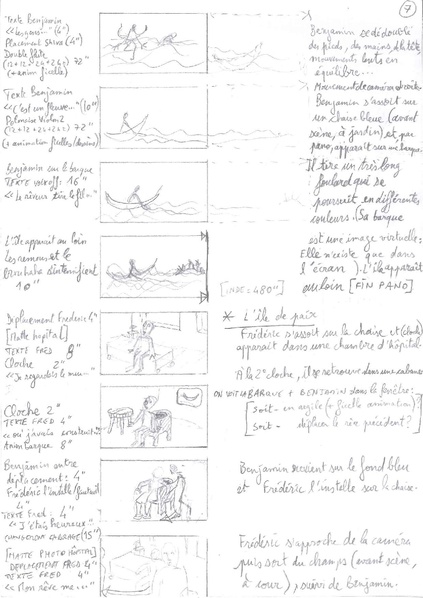 7
Texte Benjamin
Placement Shiva (4")
Double flûte
(12+12+24+24) 72"
(+ anim ficelle)
Texte Benjamin
<<C'est un fleuve..." (10")
Violon 2
72"
Benjamin sur la barque
TEXTE voix off: 16"
L'île apparaît au loin
les remous et le
brouhaha s'intensifient
10"
Déplacement Frédéric 4"
[Matte hopital]
TEXTE FRED 8"
Cloche 2"
Cloche 2"
TEXTE FRED 4"
Anim Barque 8"
Benjamin entre
déplacement: 4"
Frédéric l'installe
4"
Texte Fred: 4"
<<J'étais heureux"
[MATTE PHOTO HÔPITAL]
DEPLACEMENT FRED 4"
TEXTE FRED 4"
<<Mon rêve me..."
Benjamin se dédouble
des pieds, des mains, de la tête,
mouvements tout en
équilibre...
Benjamin s'assoit sur
une chaise bleue (avant
scène, à jardin) et, par
pano, apparaît sur une barque.
Il tire un très long
foulard qui se
poursuit en différentes
couleurs. (Sa barque
est une image virtuelle:
Elle n'existe que dans
l'écran). L'île apparaît
au loin [FIN PANO]
[INDE: 480"]
* L'île de paix
Frédéric s'assoit sur la chaise et (cloche)
apparaît dans une chambre d'hôpital.
À la 2e cloche, il se retrouve dans une cabane
ON VOIT LA BARQUE + BENJAMIN dans la fenêtre:
[soit - en argile (+ ficelle animation)
soit - déplacer le rire précédent?]
Benjamin revient sur le fond bleu
et Frédéric l'installe sur la chaise.
Frédéric s'approche de la caméra
puis sort du champs (avant scène,
à cour), suivi de Benjamin.